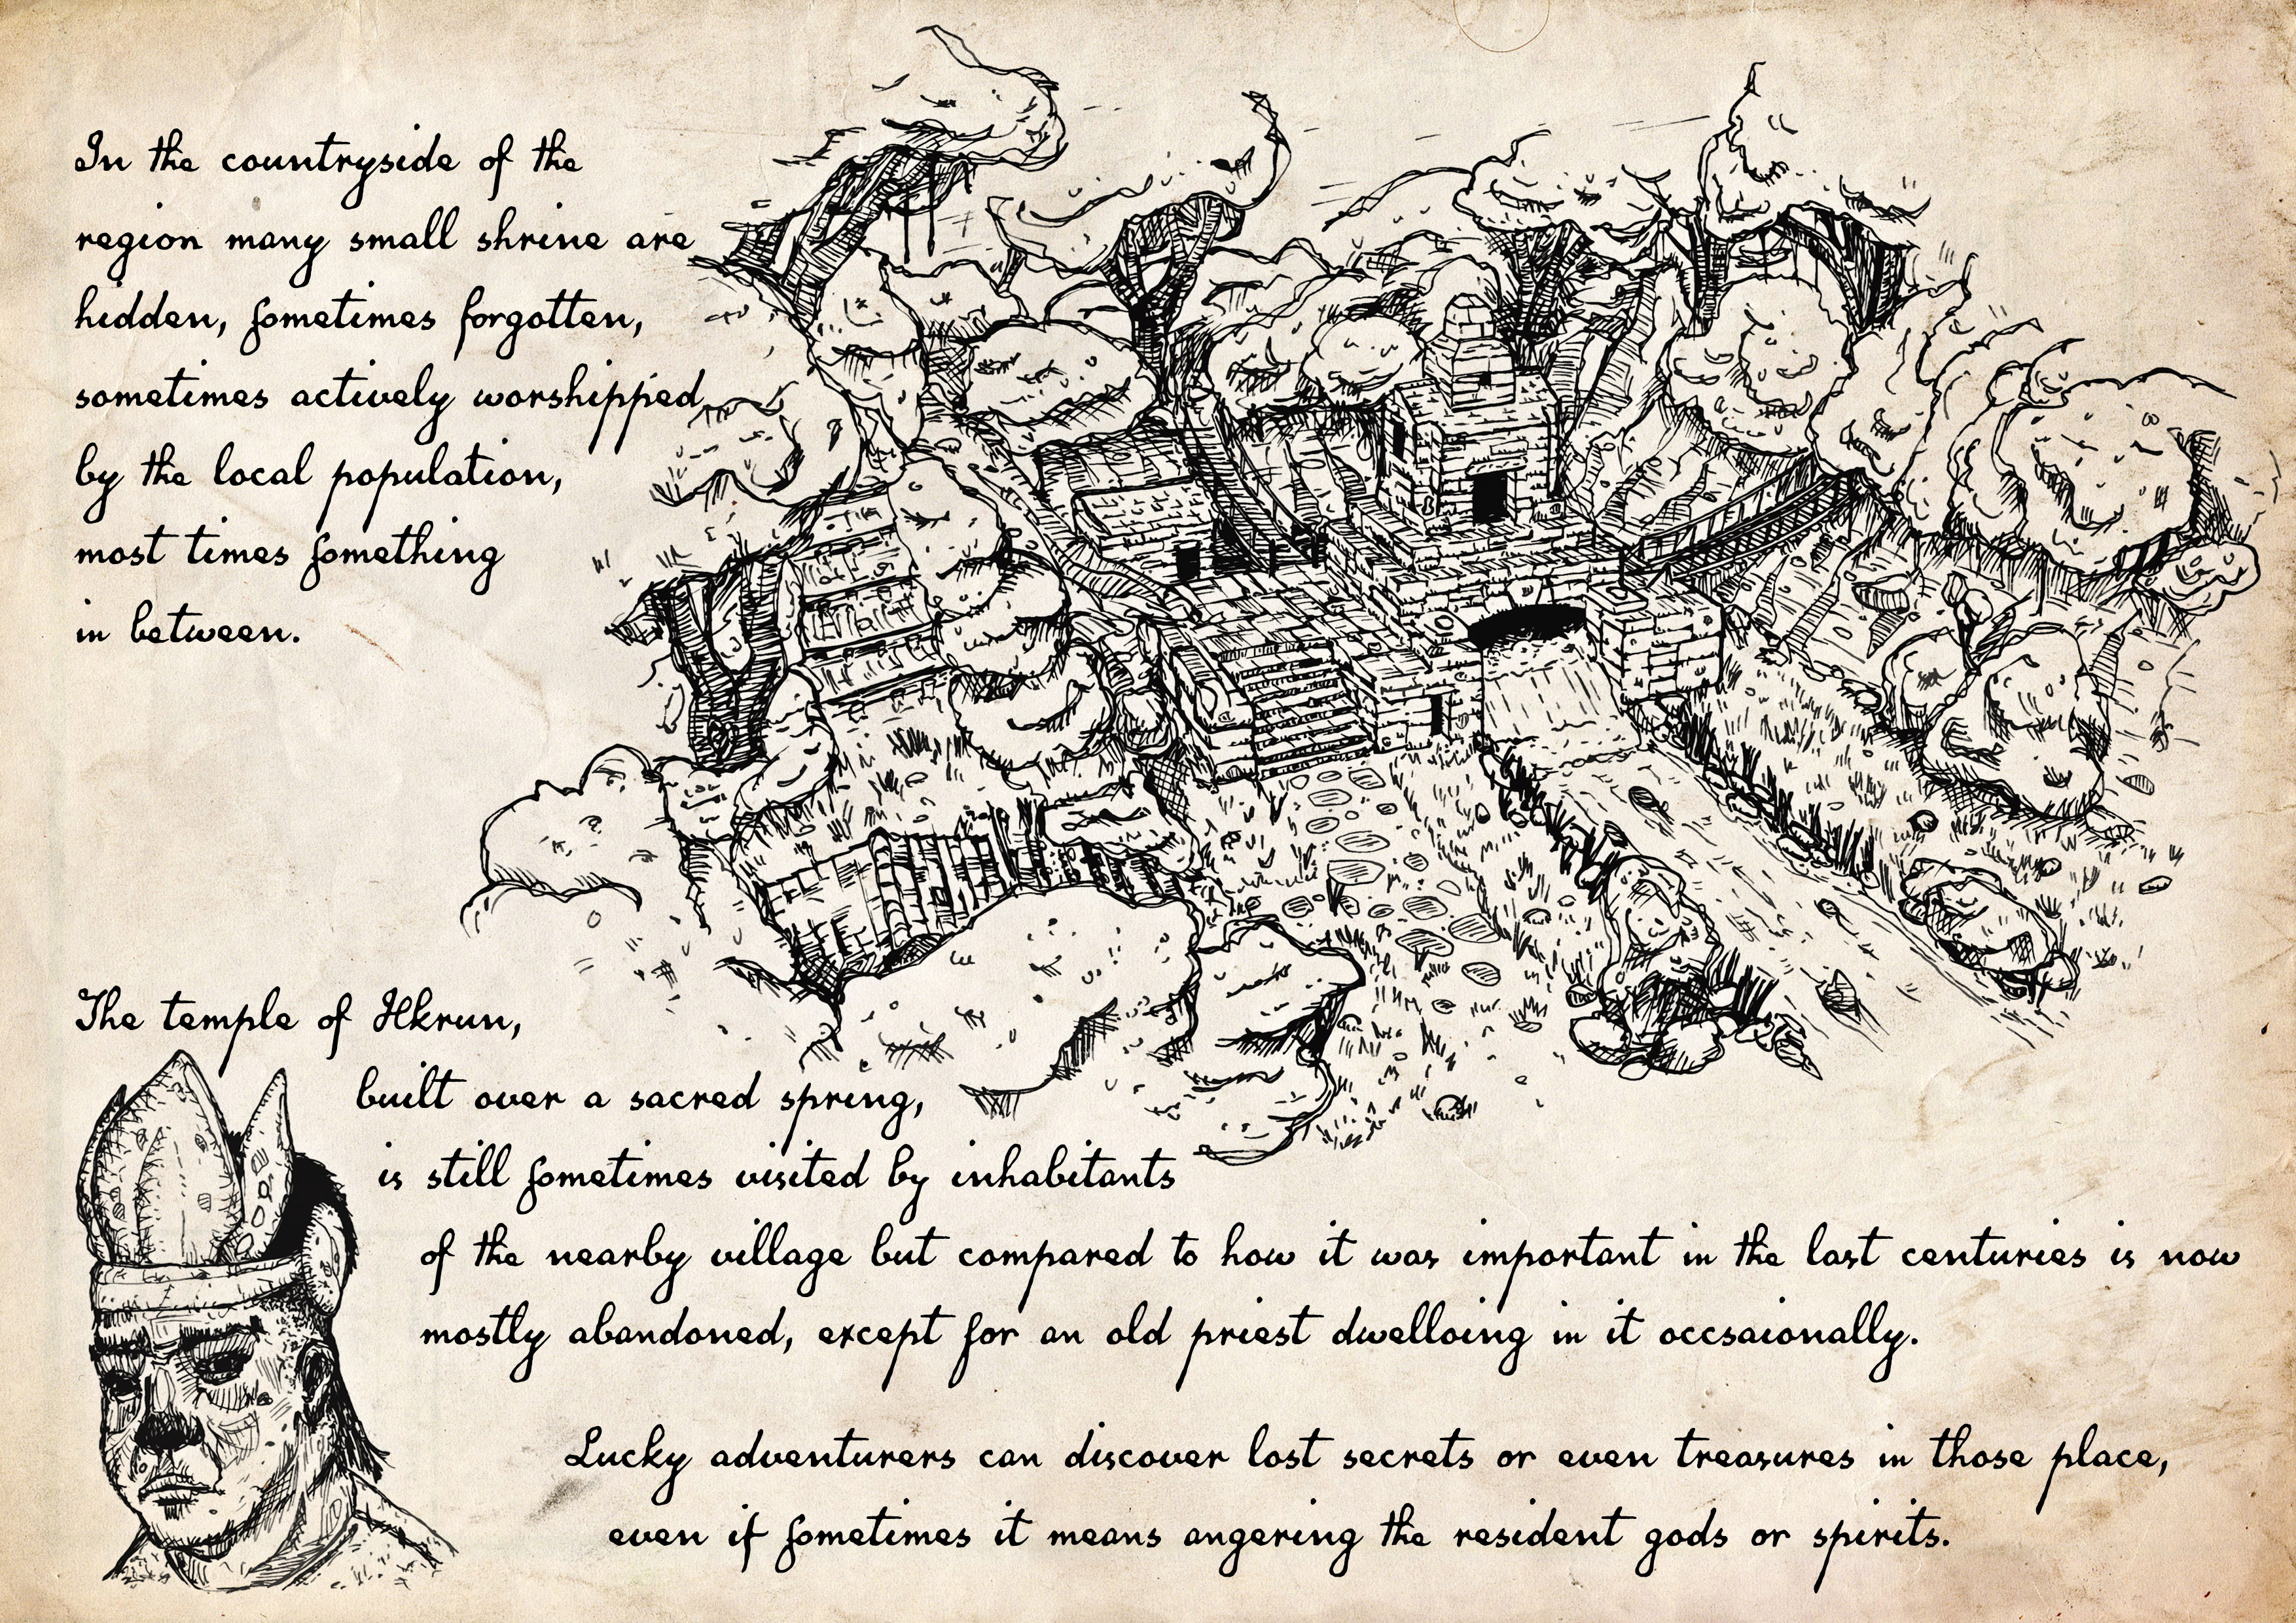 In the countryside of the
region many small shrine are
hidden, sometimes forgotten,
sometimes actively worshipped
by the local population,
most times something
in between.
The temple of Hkrun,
built over a sacred spring,
is still sometimes visited by inhabitants
of the nearby village but compared to how it was important in the last centuries is now
mostly abandoned, except for an old priest dwelloing in it occsaionally.
Lucky adventurers can discover lost secrets or even treasures in those place,
even if sometimes it means angering the resident gods or spirits.